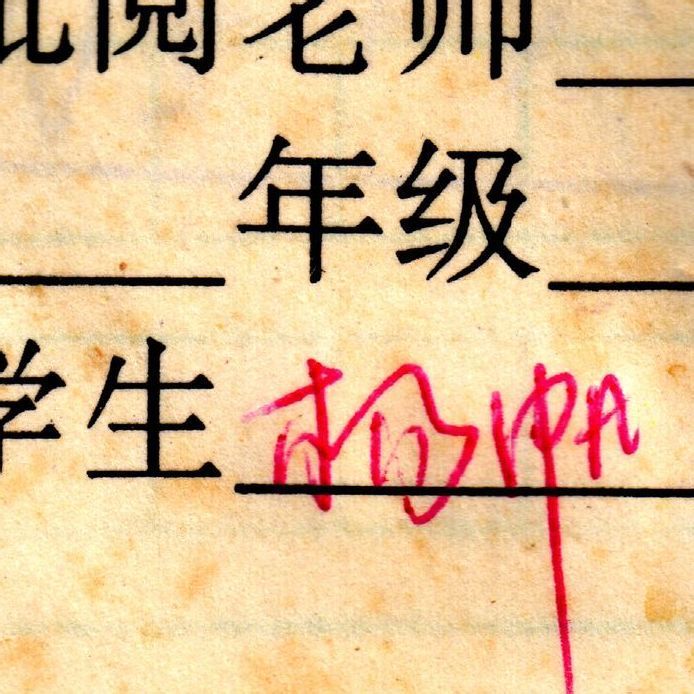 批阅老师
年级
学生 杨帆